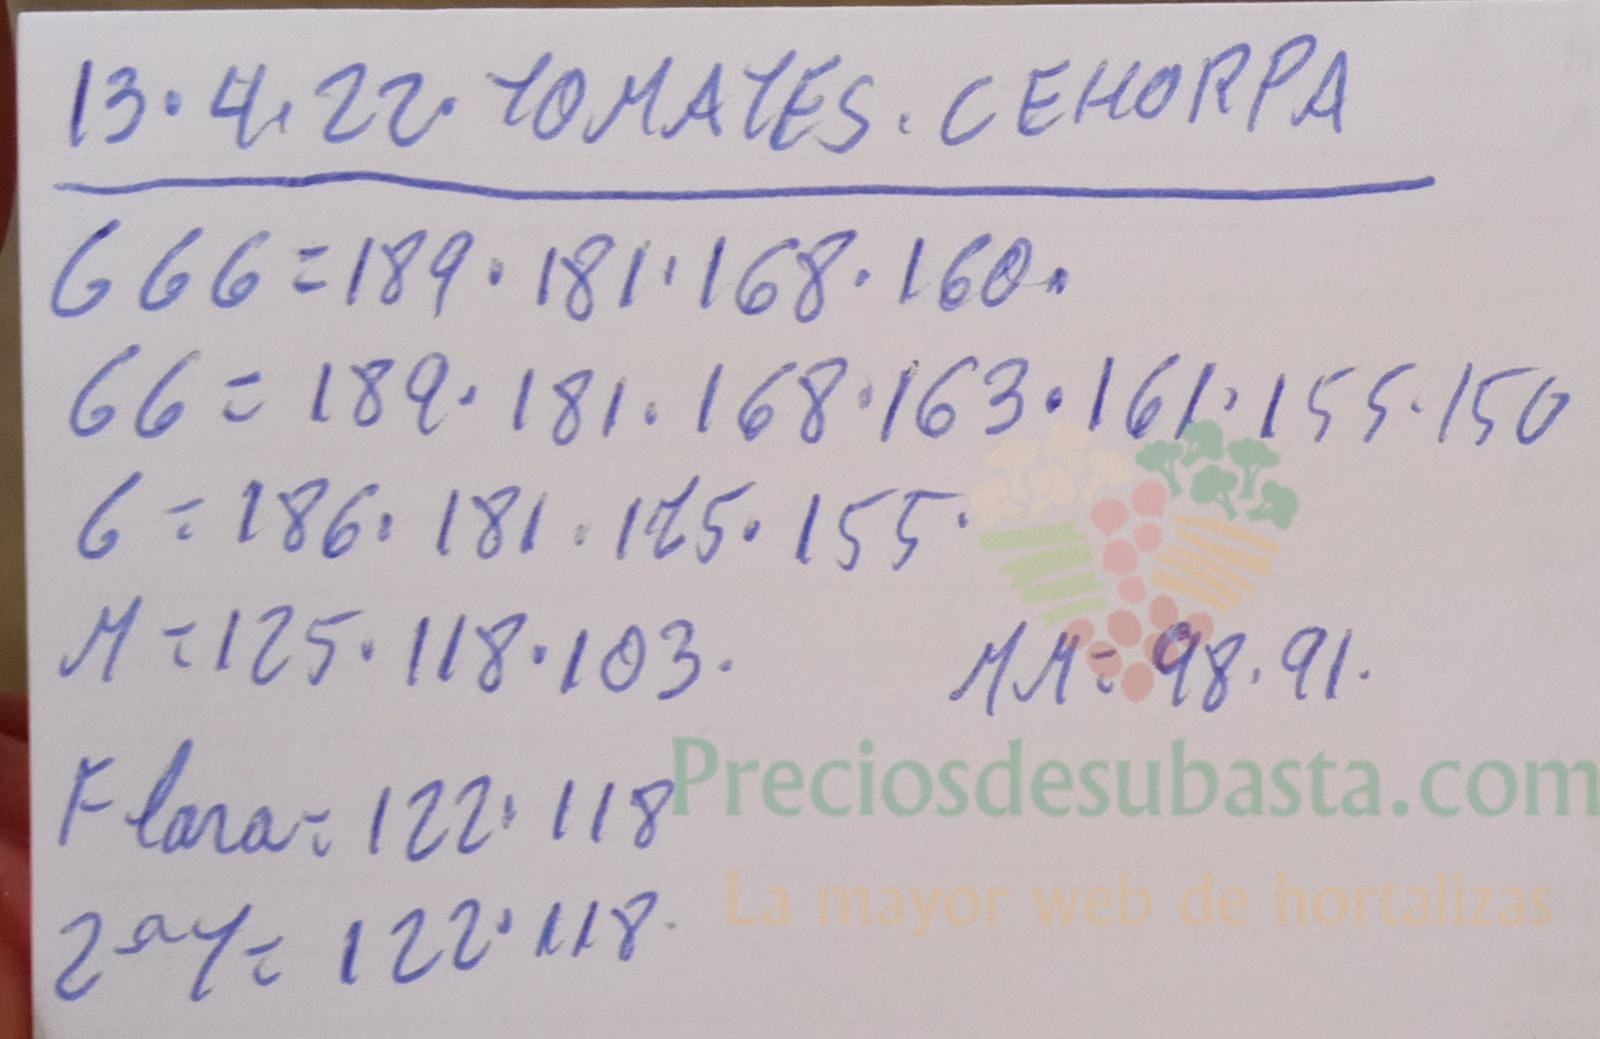 13.4.22. TOMATES. CEHORPA
GGG = 189. 181. 168. 160.
GG = 189. 181. 168. 163. 161. 155. 150
G = 186. 181. 155.
M = 125. 118. 103. MM = 98. 91.
Flora = 122. 118
2ª = 122. 118.
Preciosdesubasta.com
La mayor web de hortalizas